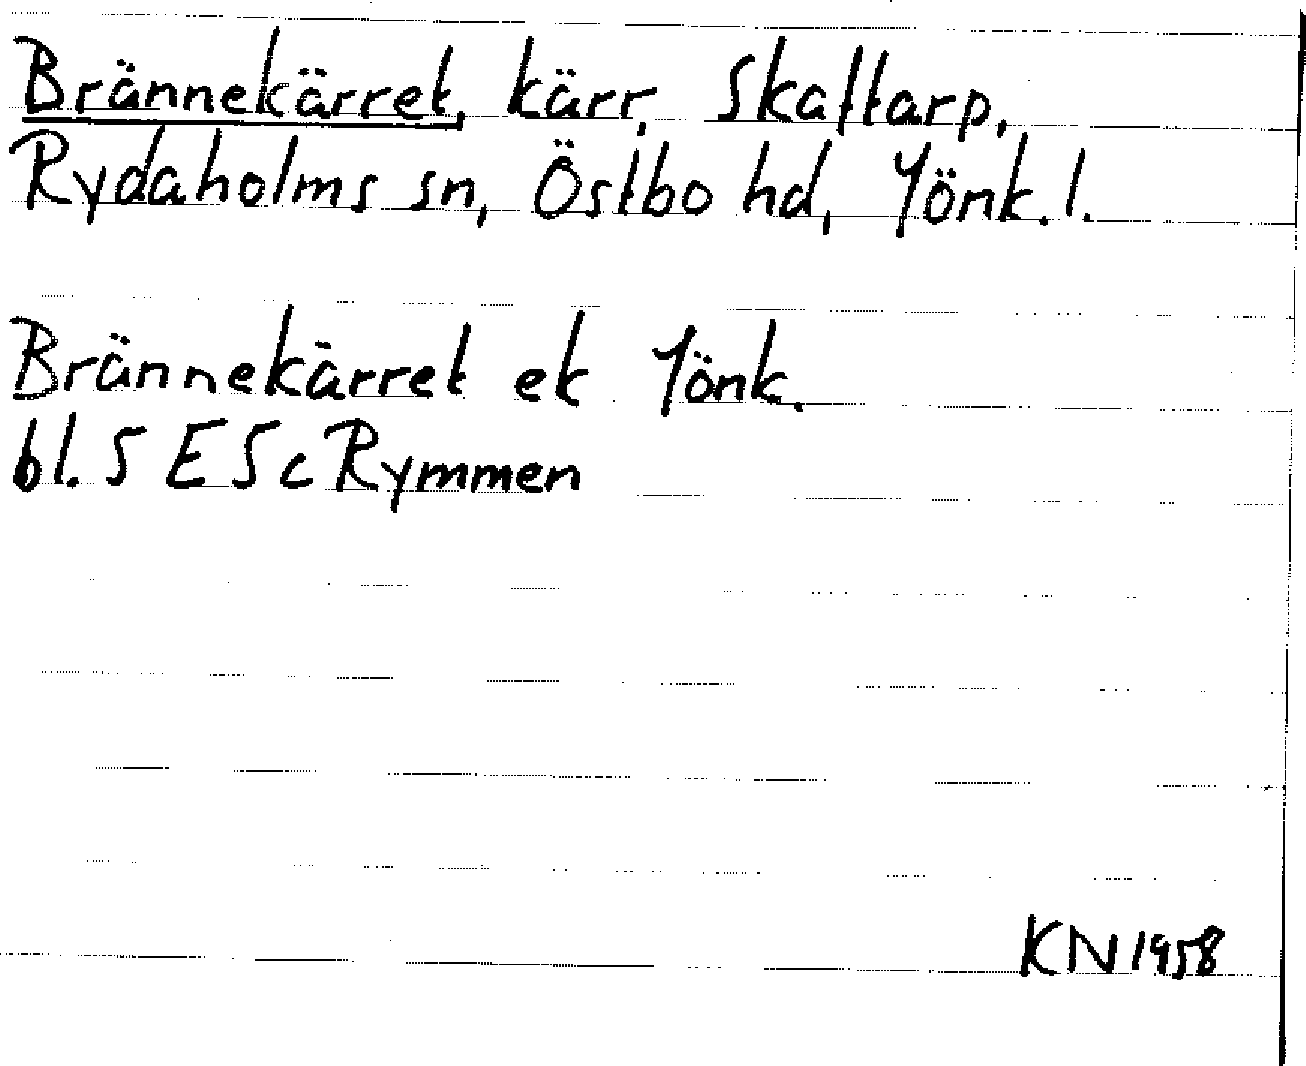 Brännekärret, kärr, Skaftarp,
Rydaholms sn, Östbo hd, Jönk. l.
Brännekärret ek Jönk.
bl. 5 E Sc Rymmen
KN 1958